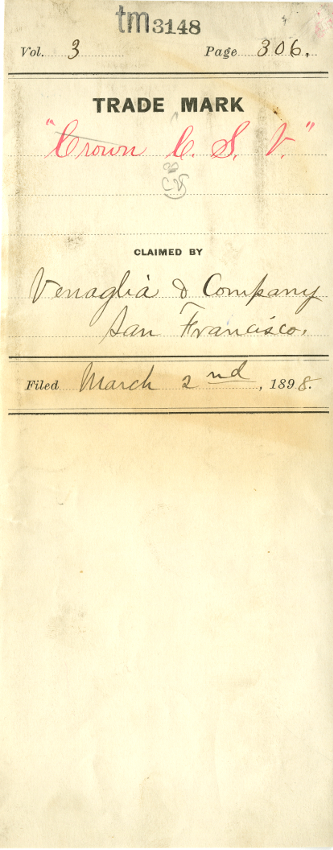 tm 3148
Vol. 3 Page 306.
TRADE MARK
"Crown C. S. V."
CLAIMED BY
Venaglia & Company
San Francisco.
Filed March 2nd, 1898.